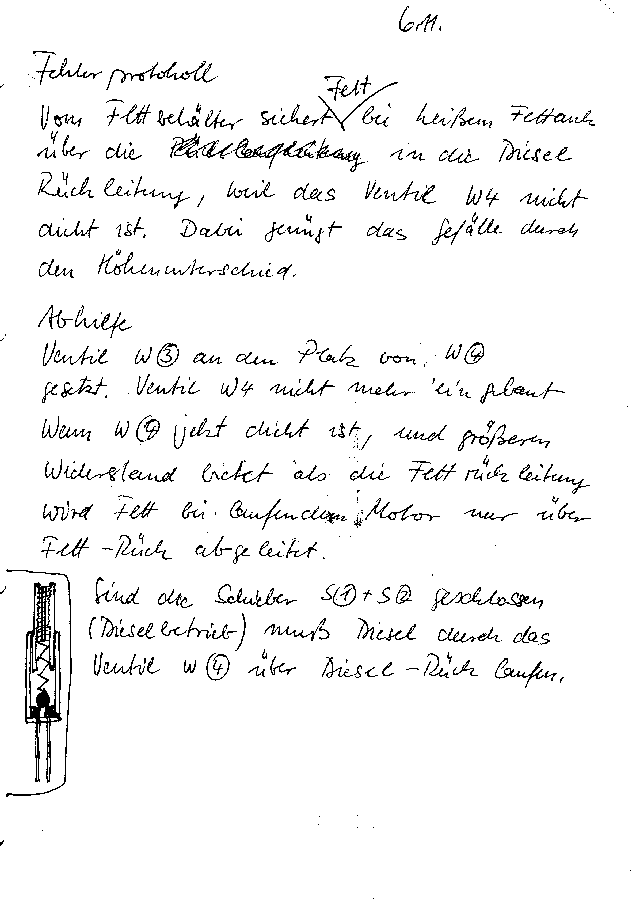 6.11.
Fehlerprotokoll
Fett
Vom Fettbehälter sichert bei heißem Fettank
über die in die Diesel
Rückleitung, weil das Ventil W4 nicht
dicht ist. Dabei genügt das Gefälle durch
den Höhenunterschied.
Abhilfe
Ventil W③ an den Platz von W④
gesetzt. Ventil W4 nicht mehr eingebaut
Wenn W④ jetzt dicht ist, und größeren
Widerstand bietet als die Fettrückleitung
wird Fett bei laufendem Motor nur über
Fett-Rück abgeleitet.
Sind die Schieber S① + S② geschlossen
(Dieselbetrieb) muß Diesel durch das
Ventil W④ über Diesel-Rück laufen.